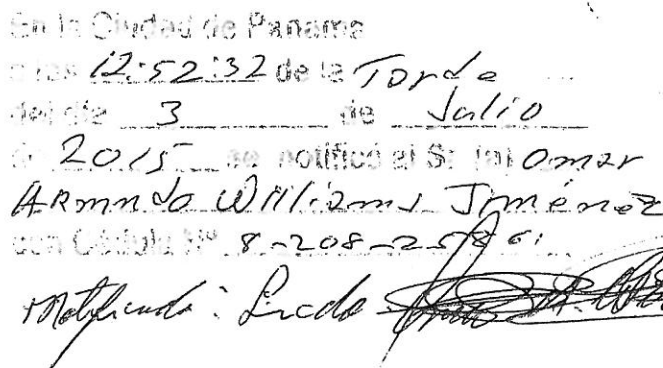 En la Ciudad de Panama
a las 12:52:32 de la Tarde
del día 3 de Julio
de 2015 se notificó al Sr. (a) Omar
ARmndo Williams Jiménez
con Cédula Nº 8-208-258
Notificado: Licdo